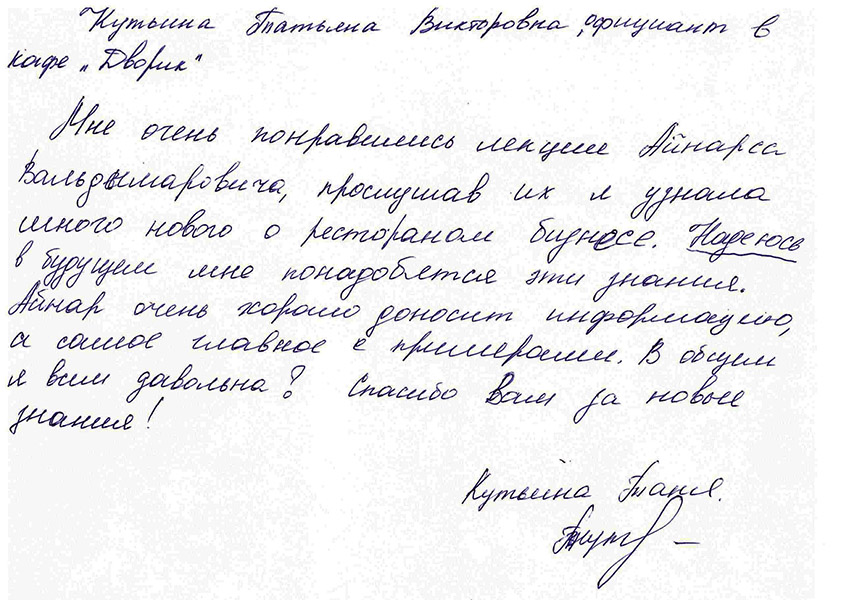 Кутьина Татьяна Викторовна, официант в
кафе „Дворик"
Мне очень понравились лекции Айнарса
Вальдымаровича, прослушав их я узнала
много нового о рестораном бизнесе. Надеюсь
в будущем мне понадобятся эти знания.
Айнар очень хорошо доносит информацию,
а самое главное с примерами. В общем
я всем давольна? Спасибо Вам за новые
знания!
Кутьина Таня.